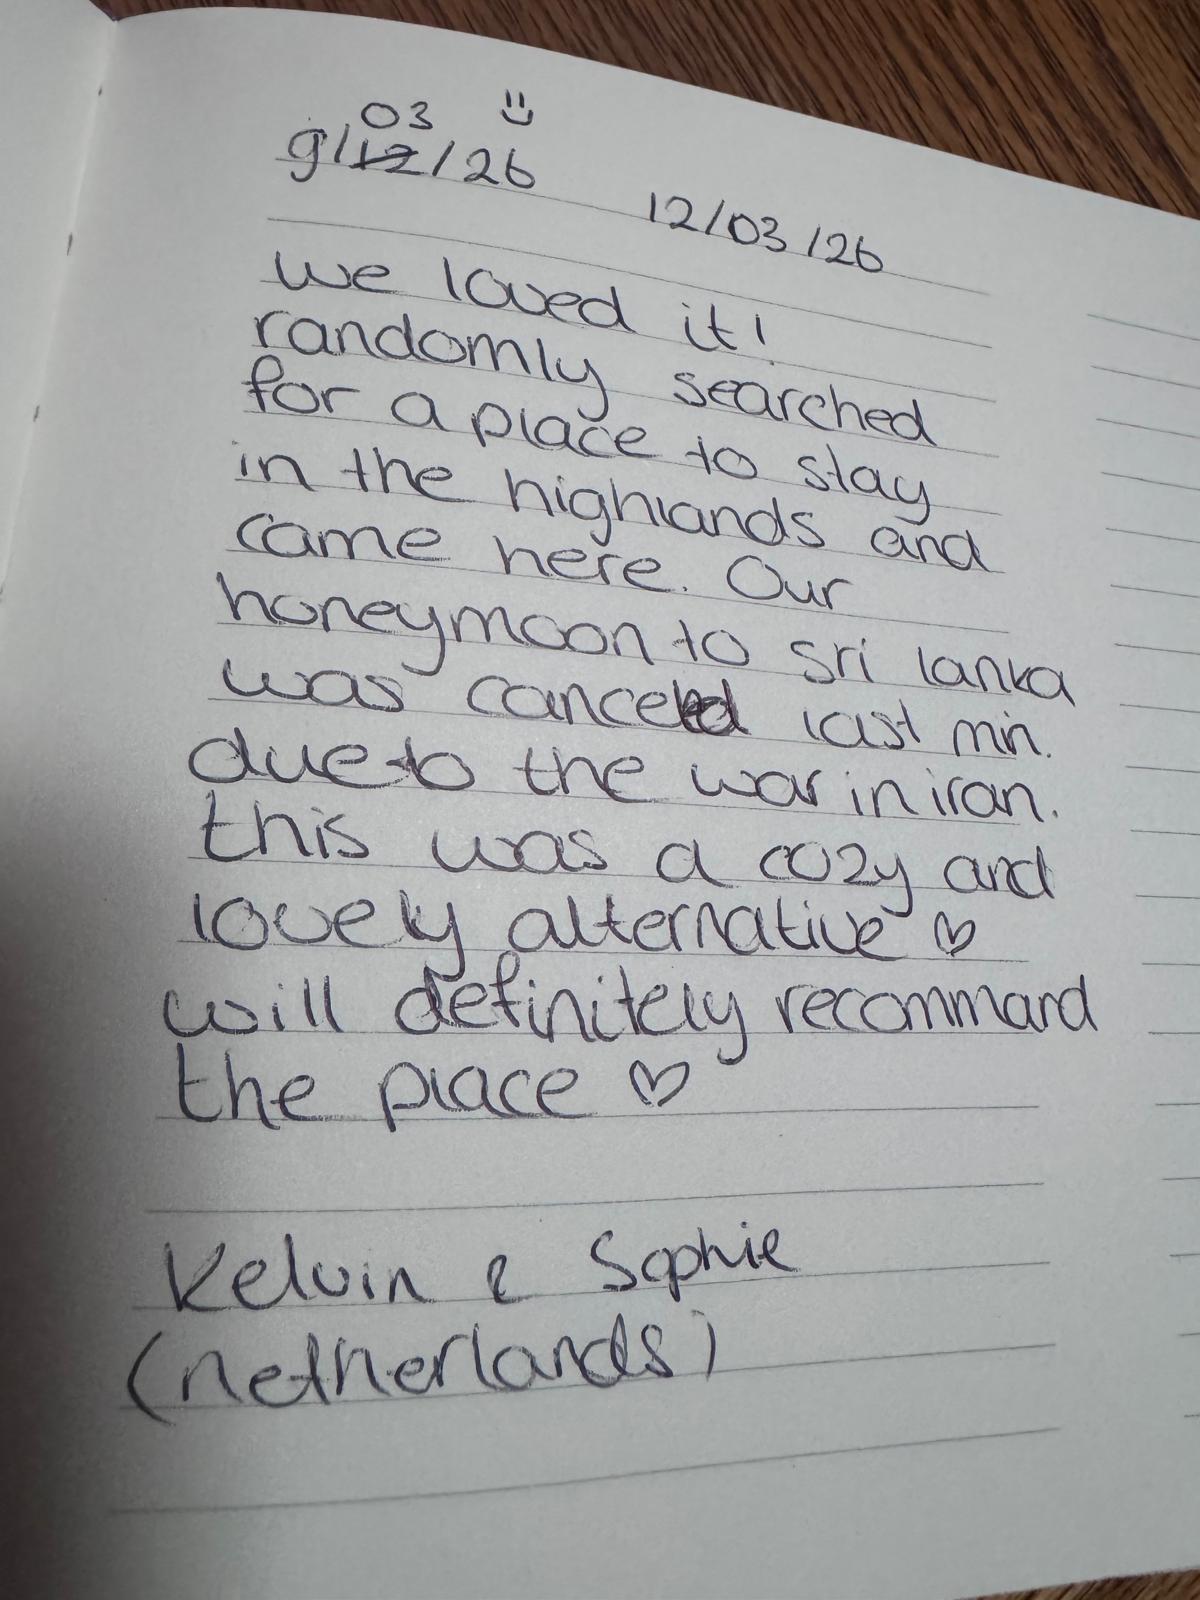 03 :)
9/12/26
12/03/26
we loved it!
randomly searched
for a place to stay
in the highlands and
came here. Our
honeymoon to sri lanka
was canceled last min.
due to the war in iran.
this was a cozy and
lovely alternative ♡
will definitely recommand
the place ♡
Kelvin & Sophie
(netherlands)